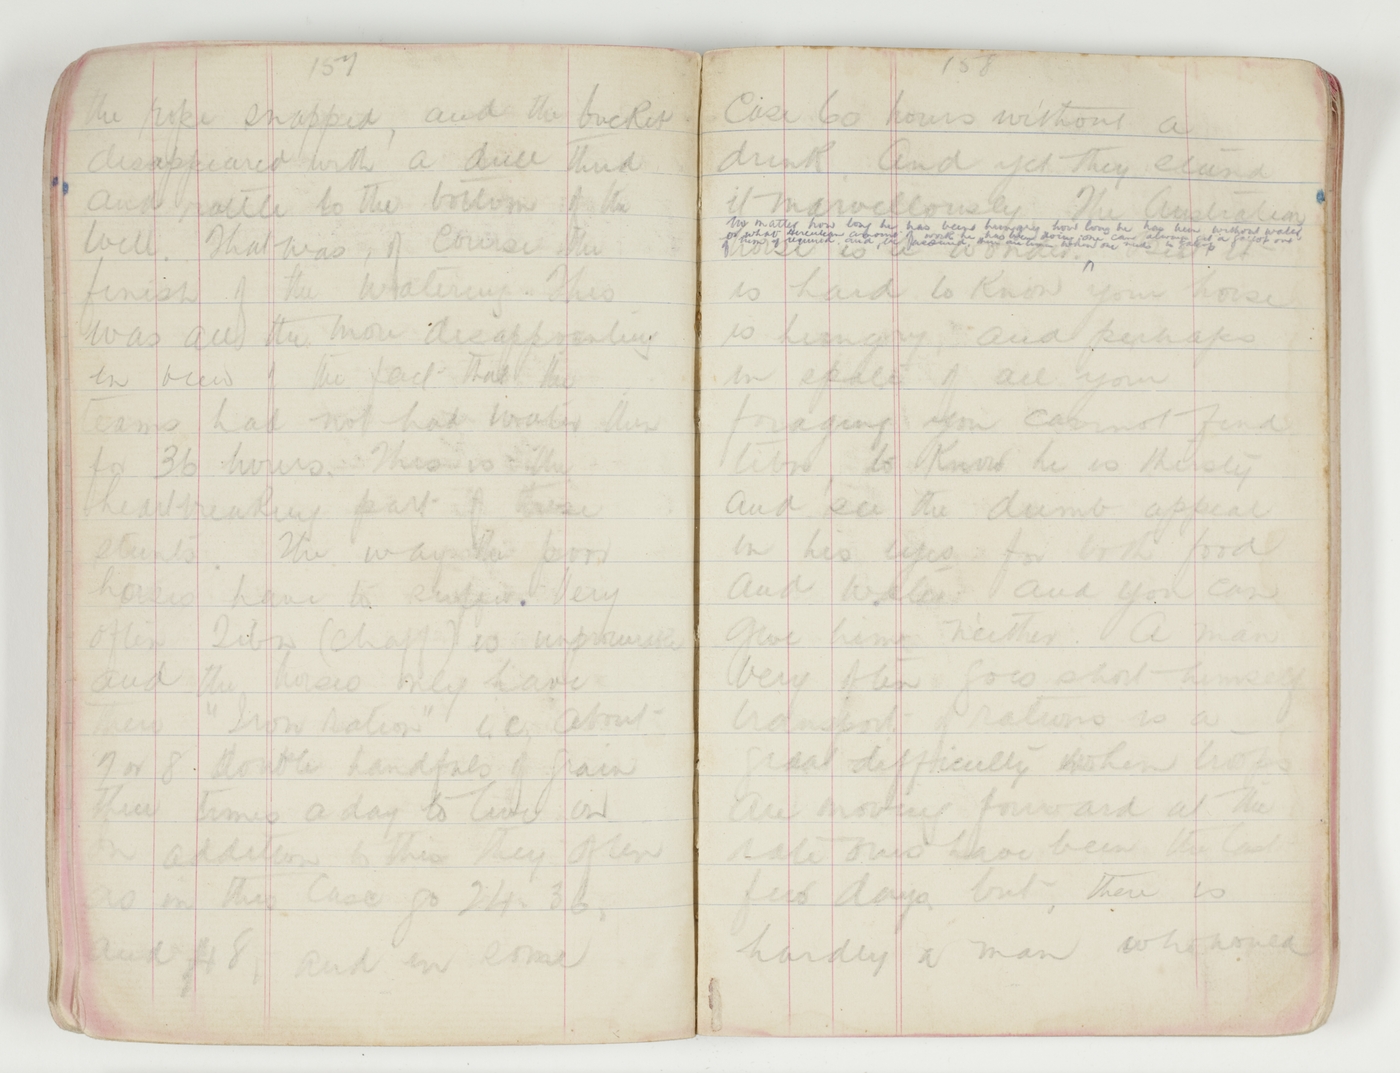 157
the rope snapped, and the bucket
disappeared with a dull thud
and rattle to the bottom of the
well. That was, of course the
finish of the watering. This
was all the more disappointing
in view of the fact that the
teams had not had water then
for 36 hours. This is the
heartbreaking part of these
stunts. The way the poor
horses have to suffer. Very
often Tibn (chaff) is
and the horses only have
their "Iron ration" i.e. about
7 or 8 double handfuls of grain
three times a day to live on
In addition to this they often
as in this case go 24, 36,
and 48, and in some
158
case 60 hours without a
drink. And yet they stand
it marvellously. The Australian
No matter how long he has been hungry how long he has been without water
or what Herculean amount of work he has been doing one can always get a gallop out
of him if required, and,
horse is a wonder. it
is hard to know your horse
is hungry, and perhaps
in spite of all your
foraging you cannot find
tibn, to know he is thirsty
and see the dumb appeal
in his eyes for both food
and water and you can
give him neither. A man
very often goes short himself
transport of rations is a
great difficulty when troops
are moving forward at the
rate ours have been the last
few days, but, there is
hardly a man who would